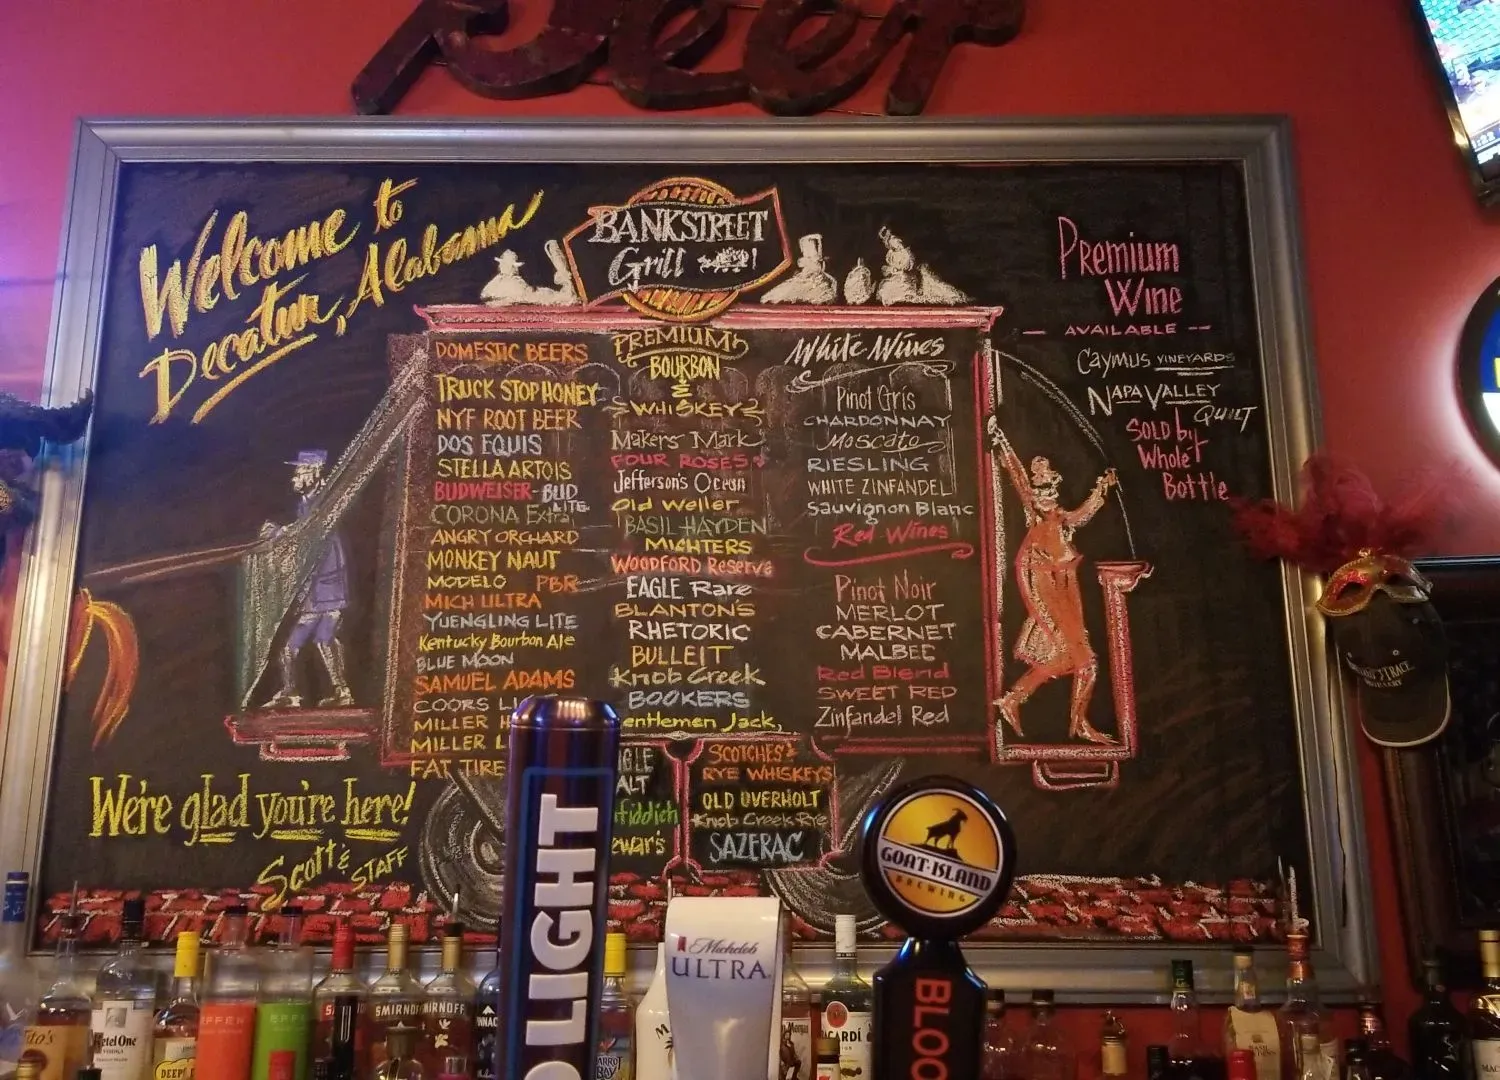 Beer
Welcome to
Decatur, Alabama
BANKSTREET
Grill
DOMESTIC BEERS
TRUCK STOP HONEY
NYF ROOT BEER
DOS EQUIS
STELLA ARTOIS
BUDWEISER - BUD
LITE
CORONA Extra
ANGRY ORCHARD
MONKEY NAUT
MODELO PBR
MICH ULTRA
YUENGLING LITE
Kentucky Bourbon Ale
BLUE MOON
SAMUEL ADAMS
COORS LI
MILLER H
MILLER L
FAT TIRE
PREMIUM
BOURBON
&
WHISKEY
Makers Mark
FOUR ROSES
Jefferson's Ocean
Old Weller
BASIL HAYDEN
MICHTERS
WOODFORD Reserve
EAGLE Rare
BLANTON'S
RHETORIC
BULLEIT
Knob Creek
BOOKERS
entlemen Jack,
GLE
ALT
fiddich
ewar's
SCOTCHES &
RYE WHISKEYS
OLD OVERHOLT
Knob Creek Rye
SAZERAC
White Wines
Pinot Gris
CHARDONNAY
Moscato
RIESLING
WHITE ZINFANDEL
Sauvignon Blanc
Red Wines
Pinot Noir
MERLOT
CABERNET
MALBEC
Red Blend
SWEET RED
Zinfandel Red
Premium
Wine
AVAILABLE
Caymus VINEYARDS
NAPA VALLEY
QUILT
SOLD by
Whole
Bottle
We're glad you're here!
Scott &
STAFF
D LIGHT
Michelob
ULTRA
GOAT ISLAND
BREWING
BLOO
Tito's
Ketel One
VODKA
DEEP
EFFEN
SMIRNOFF
SMIRNOFF
PARROT
BAY
BACARDI
TRACE